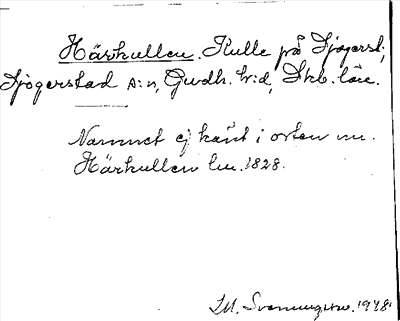 Härkullen. Kulle på Sjogerst.,
Sjogerstad s:n, Gudh. h:d, Skb. län.
Namnet ej känt i orten nu.
Härkullen lm. 1828.
I. M. Svenungsson. 1948